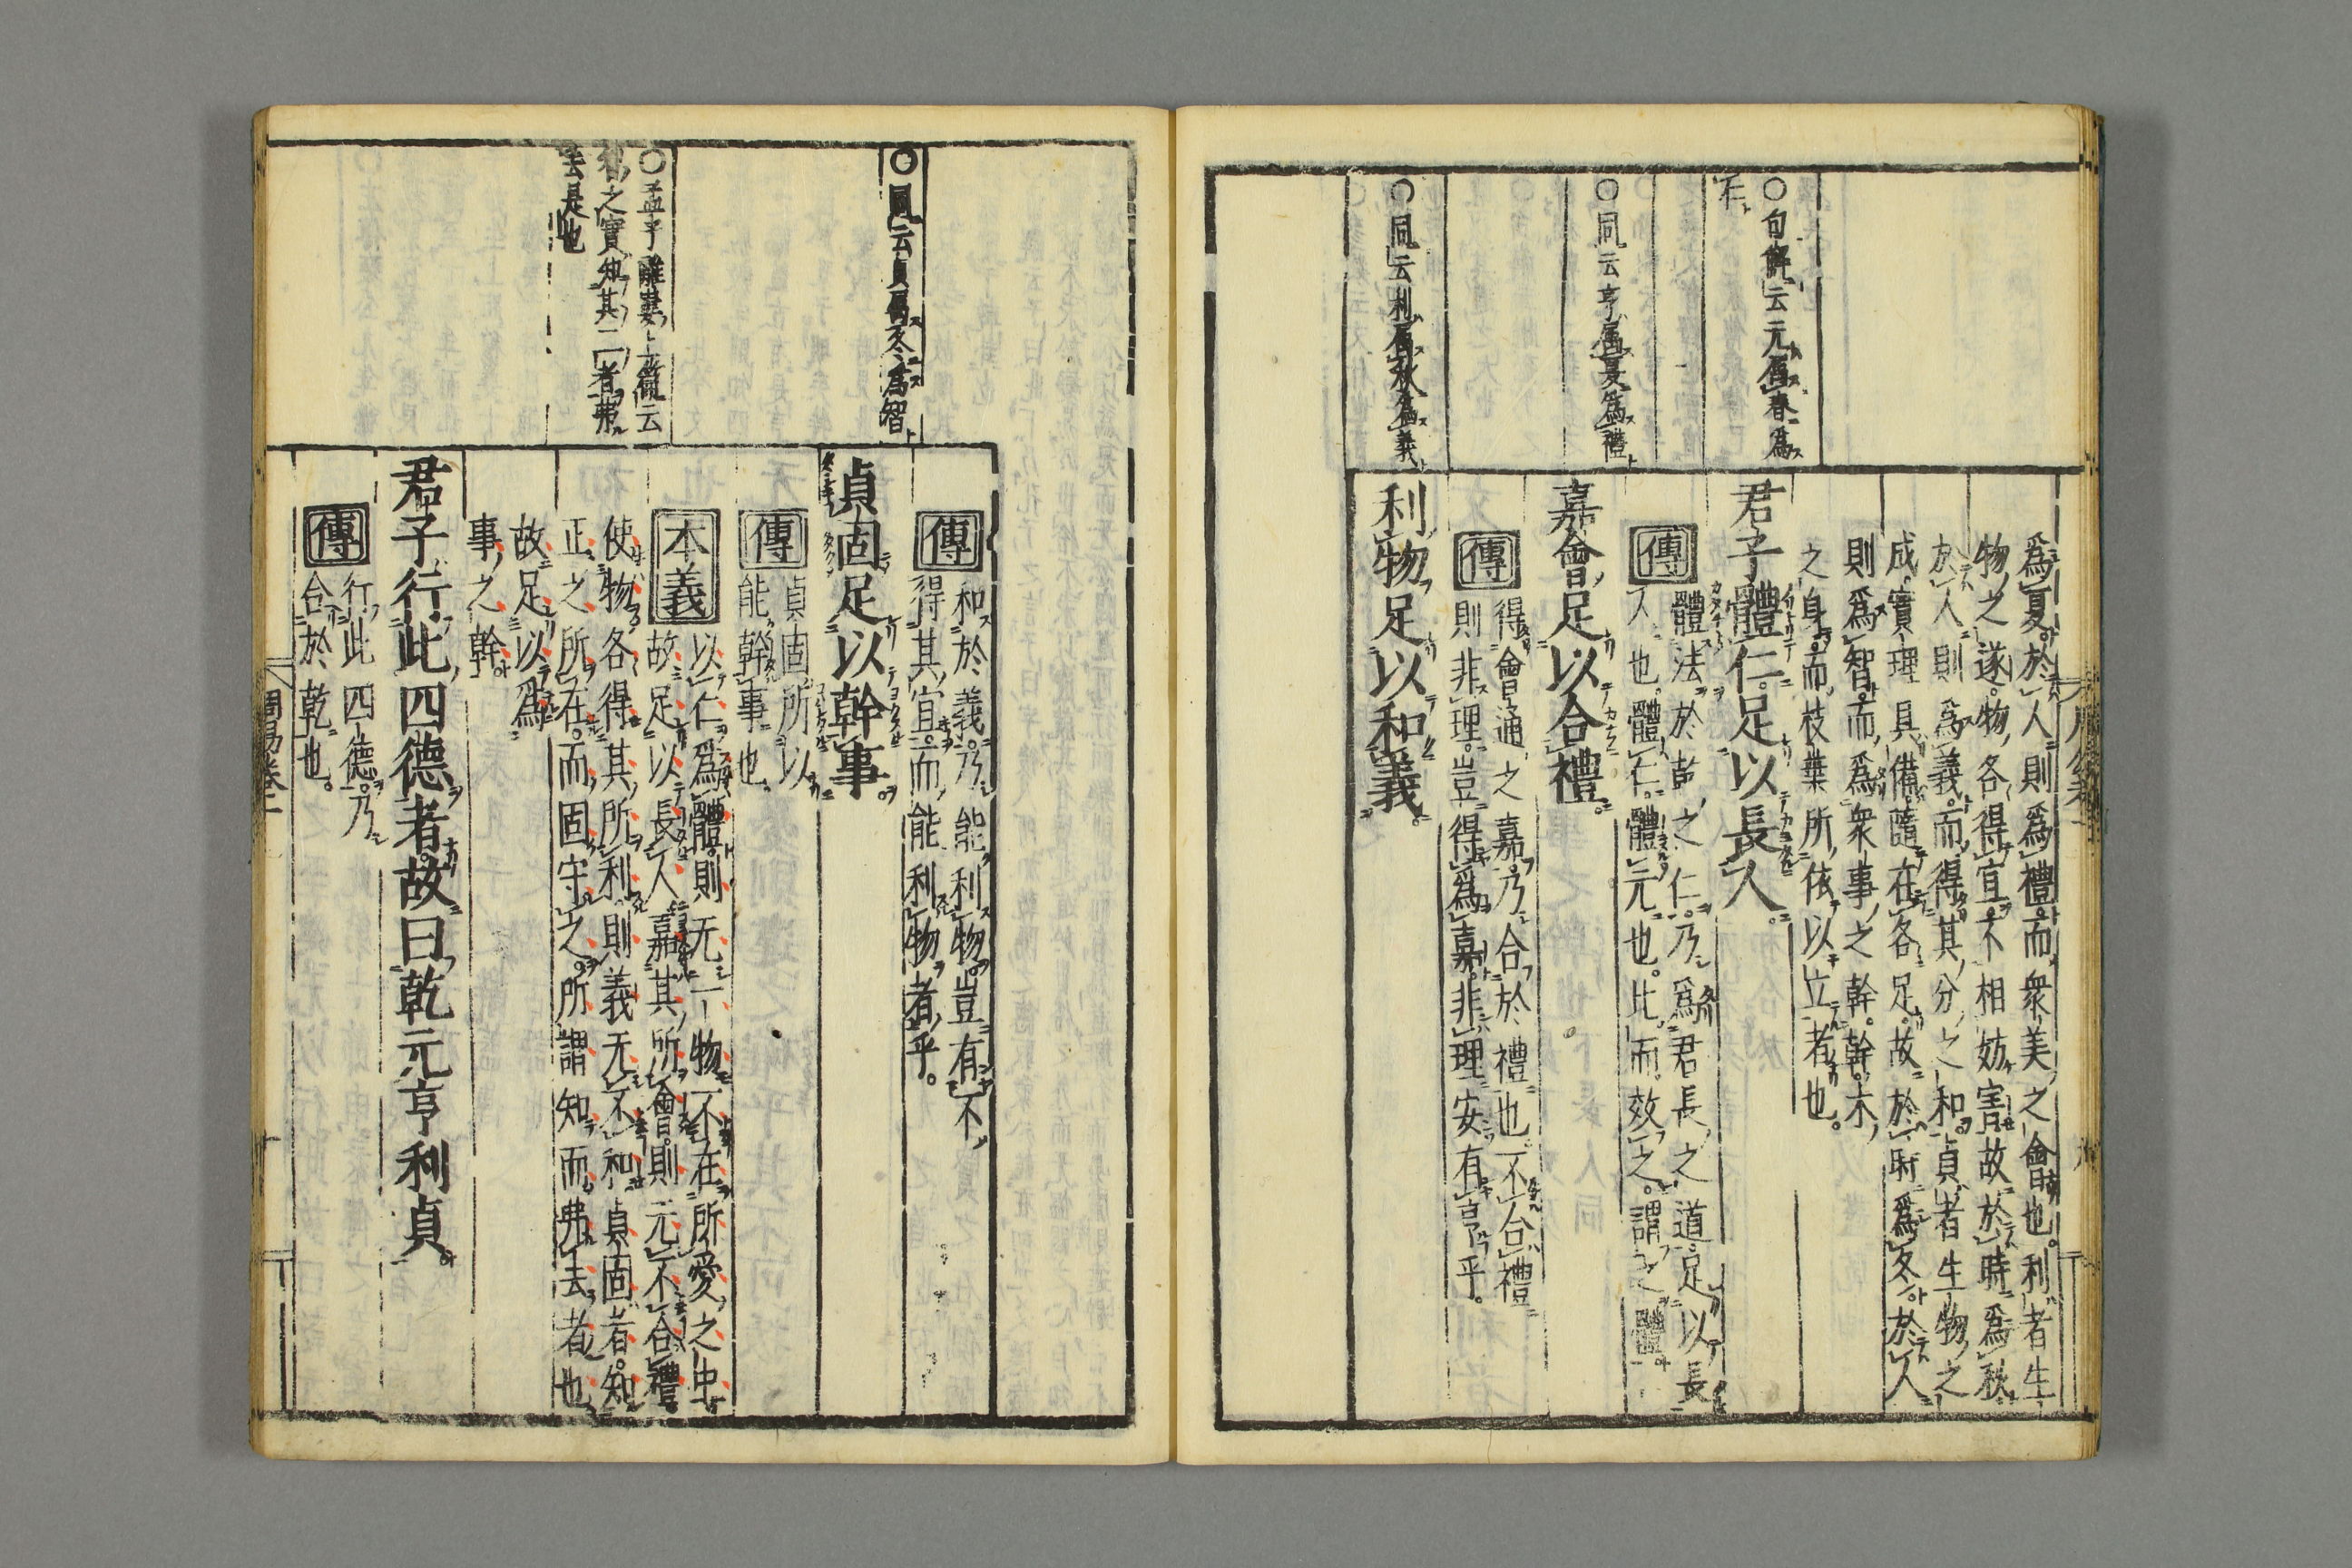 ○句解云元属春為
仁
○同云亨属夏爲禮
○同云利属秋爲義
爲夏於人則爲禮而衆美之會也利者生
物之遂物各得宜不相妨害故於時爲秋
於人則爲義而得其分之和貞者生物之
成實理具備隨在各足故於時爲冬於人
則爲智而爲衆事之幹幹木
之身而枝葉所依以立者也
君子體仁足以長人
傳
體法於乾之仁乃爲君長之道足以長
人也體仁體元也比而效之謂之體
嘉會足以合禮
傳
得會通之嘉乃合於禮也不合禮
則非理豈得爲嘉非理安有亨乎
利物足以和義
○同云貞属冬爲智
○孟子離婁上篇云
智之實知其二者弗
去是也
傳
和於義乃能利物豈有不
得其宜而能利物者乎
貞固足以幹事
傳
貞固所以
能幹事也
本義
以仁爲體則无一物不在所愛之中
故足以長人嘉其所會則无不合禮
使物各得其所利則義无不和貞固者知
正之所在而固守之所謂知而弗去者也
故足以爲
事之幹
君子行此四德者故曰乾元亨利貞
傳
行此四德乃
合於乾也
周易卷二